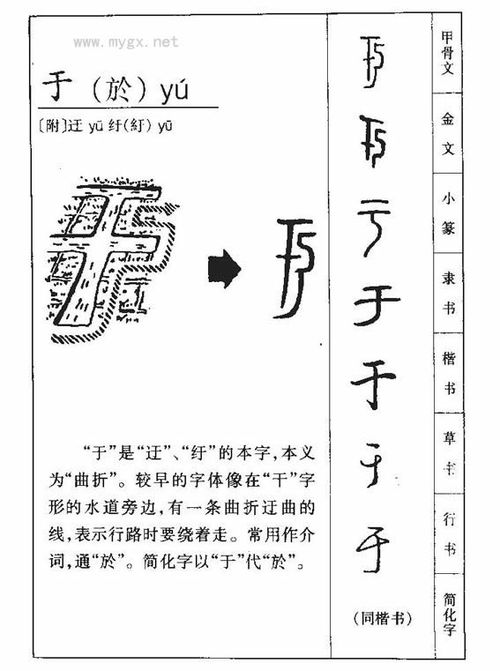 www.mygx.net
于（於）yú
〔附〕迂 yū 纡（紆）yū
“于”是“迂”、“纡”的本字，本义
为“曲折”。较早的字体像在“干”字
形的水道旁边，有一条曲折迂曲的
线，表示行路时要绕着走。常用作介
词，通“於”。简化字以“于”代“於”。
甲骨文
金文
小篆
隶书
楷书
草书
行书
简化字
于
于
于
于
于
于
于
（同楷书）